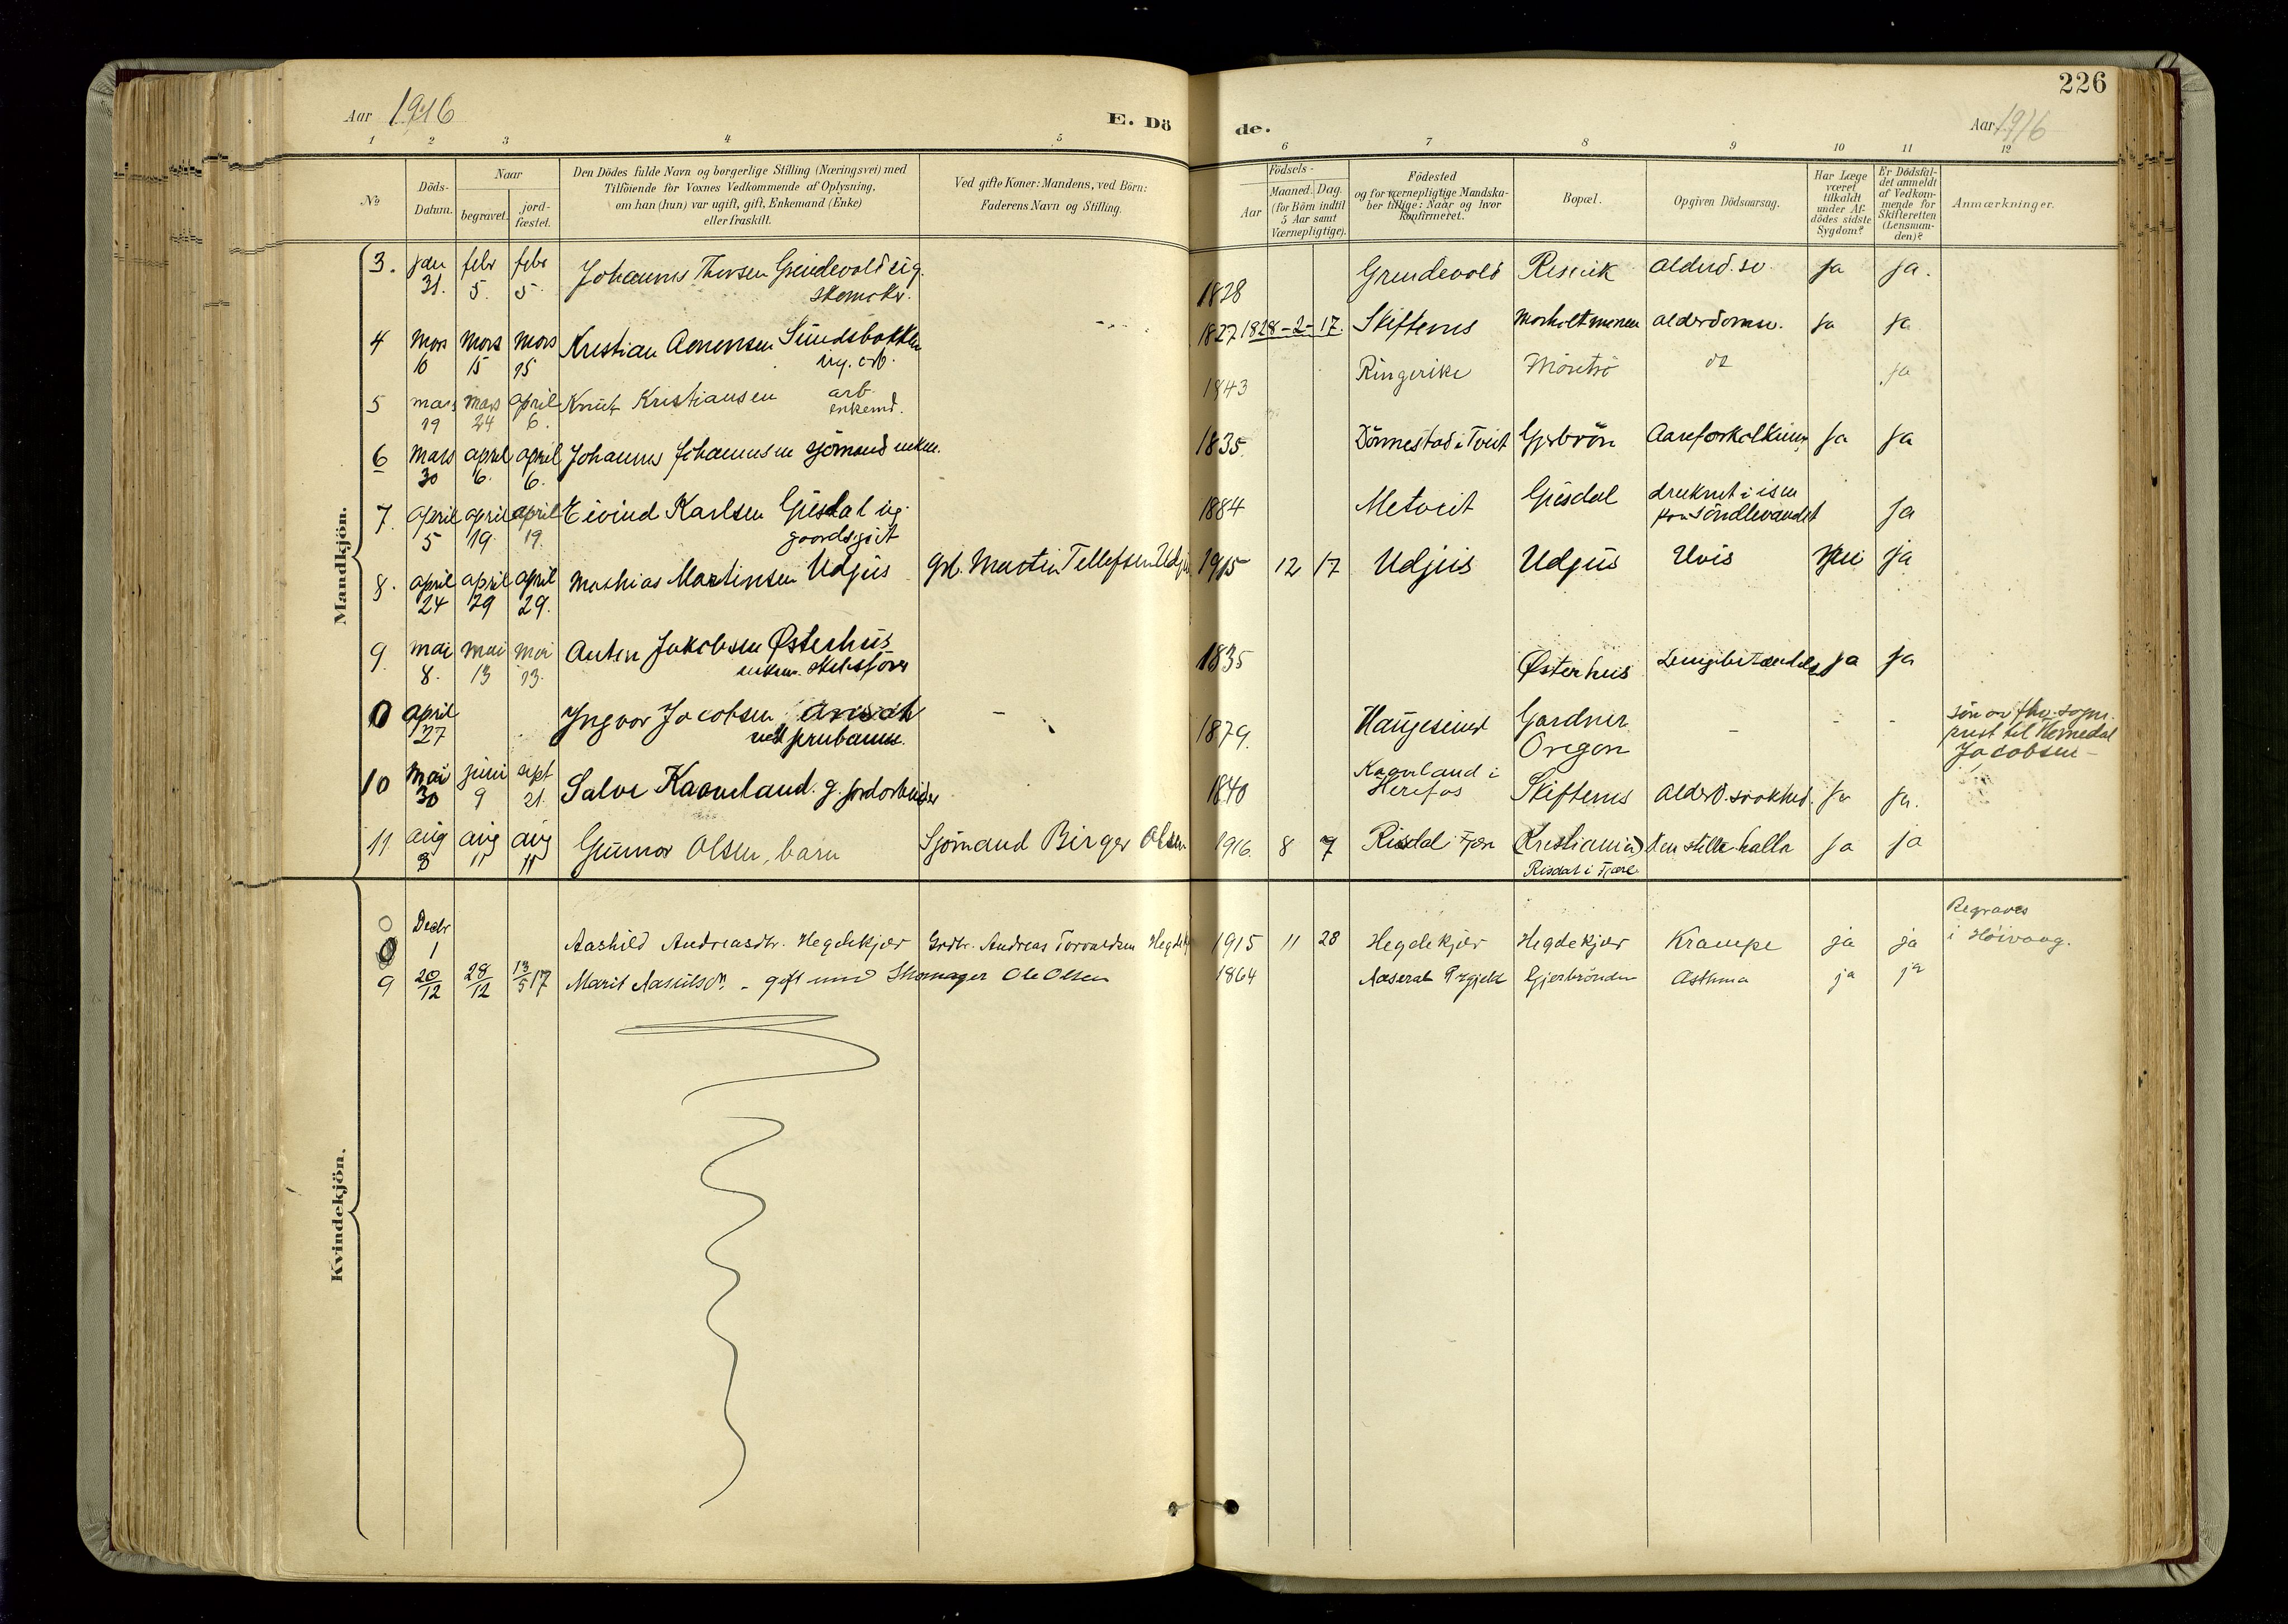 226
Aar 1916
E. Dö
de.
Aar 1916
1 2 3 4 5 6 7 8 9 10 11 12
№
Döds-
Datum.
Naar
begravet.
jord-
fæstet.
Den Dödes fulde Navn og borgerlige Stilling (Næringsvei) med
Tilföiende for Voxnes Vedkommende af Oplysning,
om han (hun) var ugift, gift, Enkemand (Enke)
eller fraskilt.
Ved gifte Koner: Mandens, ved Börn:
Faderens Navn og Stilling.
Födsels-
Aar
Maaned. Dag.
(for Börn indtil
5 Aar samt
Værnepligtige).
Födested
og for værnepligtige Mandska-
ber tillige: Naar og hvor
konfirmeret.
Bopæl.
Opgiven Dödsaarsag.
Har Læge
været
tilkaldt
under Af-
dödes sidste
Sygdom?
Er Dödsfal-
det anmeldt
af Vedkom-
mende for
Skifteretten
(Lensman-
den)?
Anmærkninger.
Mandkjön.
3. jan febr febr Johannes Thorsen Grendevold ug. 1828 Grendevold Resvik ja ja.
31. 5. 5.
4 Mars Mars Mars Kristian 1827 1828-2-17. Skiftenes ja ja
6 15 15
5 mars mars april Knut Kristiansen arb. 1843 Ringerike ja
19 24 6. enkemd.
6 Mars april april Johannes Johannesen sjömand enkem. 1835. Dönnestad i Tveit Aareforkalkning ja ja
30 6. 6.
7. april april april Eivind Karlsen Gusdal ug. 1884 Metveit Gusdal druknet i isen ja
5 19. 19. gaardsgut
8. april april april Mathias Martinsen Udjus Gbr. Martin Tellefsen Udjus 1915 12 17 Udjus Udjus Uvis Nei ja
24 29 29.
9 mai mai mai Anton Jakobsen Østerhus 1835 Østerhus Lungebetændelse ja ja
8. 13 13. enkem. skibsförer
0 april Yngvar Jacobsen 1879. Haugesund Gardner - - - sön av fhv. sogne-
27 ved jernbanen. Oregon prest til Homedal
Jacobsen -
10 Mai juni sept Salve Kaaveland. g. jordarbeider 1840 Kaaveland i Skiftenes ja ja.
30 9 21. Herefos
11 aug aug aug Gunnar Olsen, barn Sjömand Birger Olsen 1916. 8 7 Risdal i Fjære (Kristiania) ja ja
8 11 11 Risdal i Fjære
Kvindekjön.
0 Decbr Aashild Andreasdtr. Hegdekjær Grdbr. Andreas Torvaldsen 1915 11 28 Hegdekjær Hegdekjær Krampe ja ja Begraves
1 i Höivaag.
9 20/12 28/12 13/5 17 Marit Aasulsdtr. - gift med Skomager Ole Olsen 1864 Aaseral Prgjeld Gjerbrönden Asthma ja ja